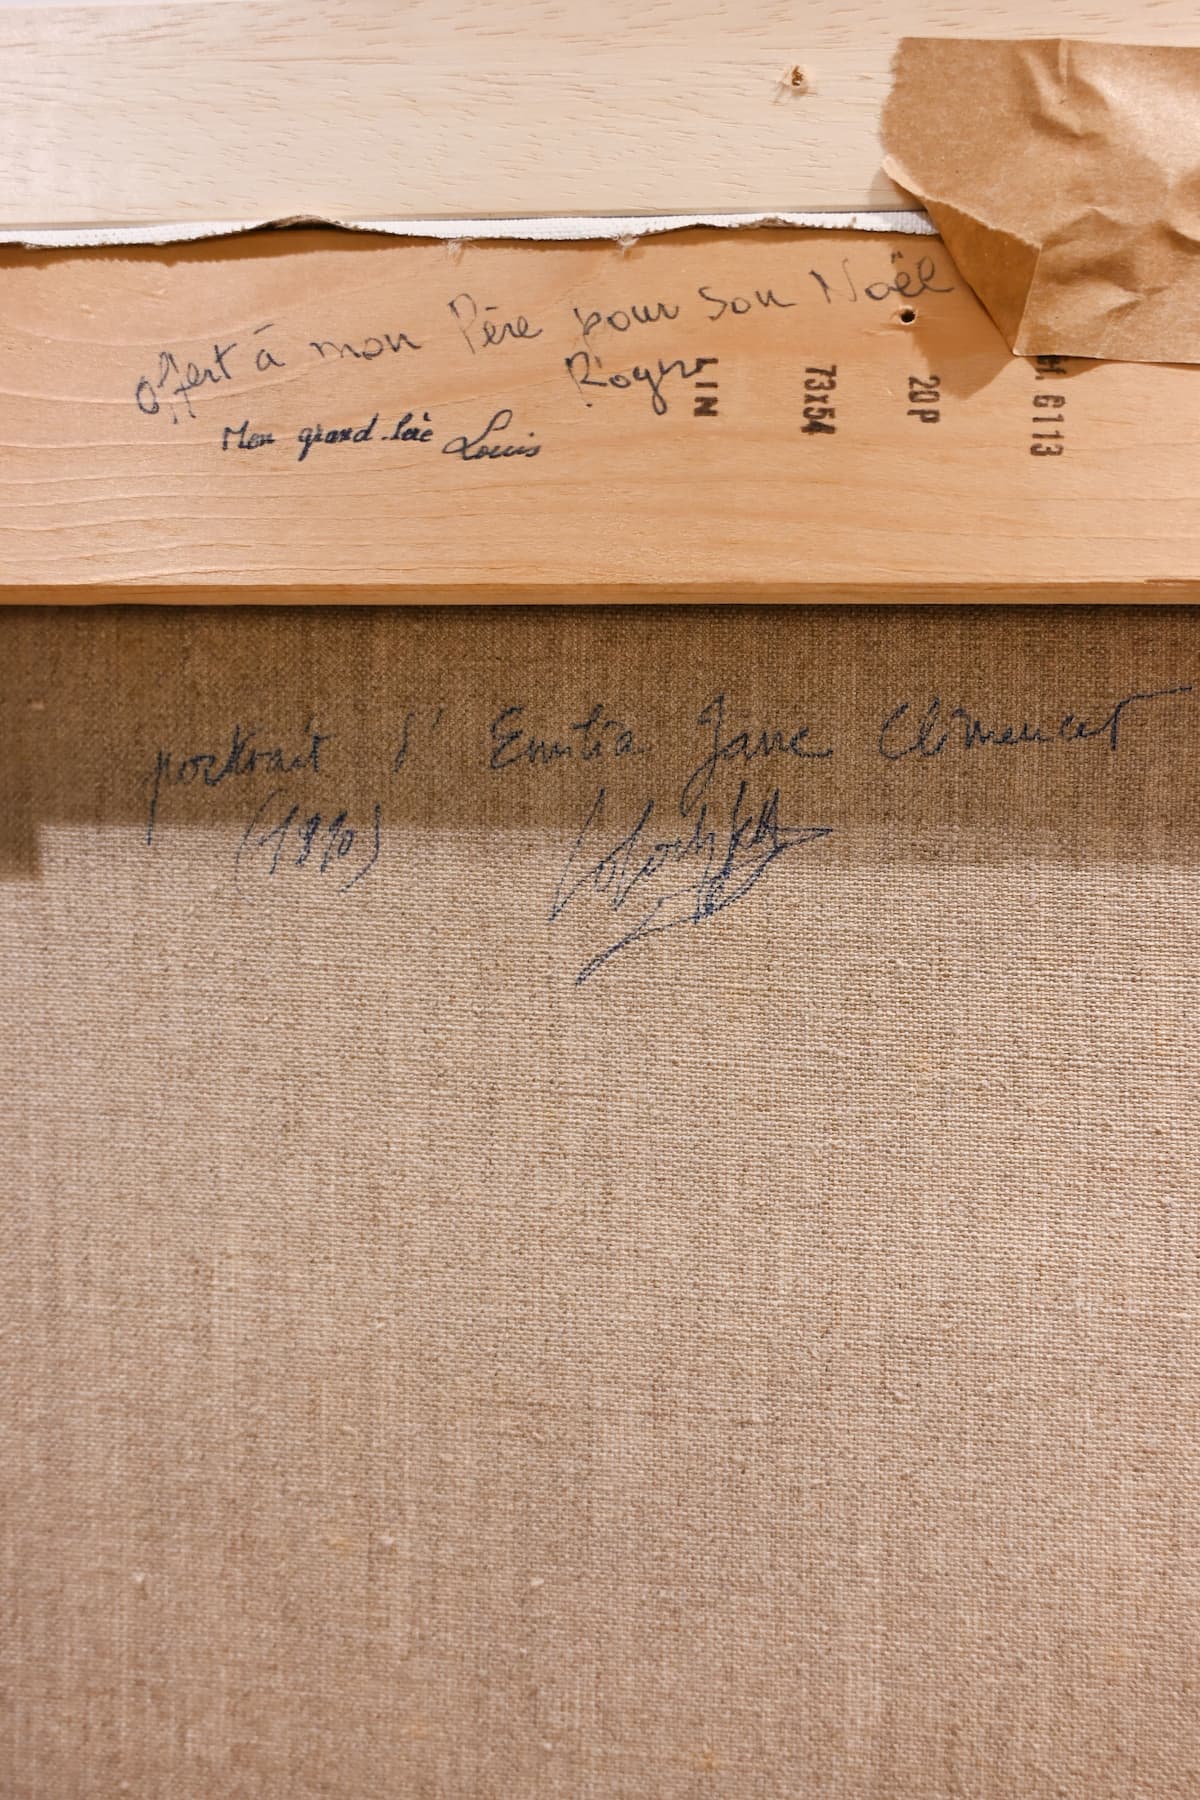 offert à mon Père pour son Noël
Roger
Mon grand-père Louis
LIN
73x54
20P
6113
portrait d' Emilia Jane Clémencet
(1990)